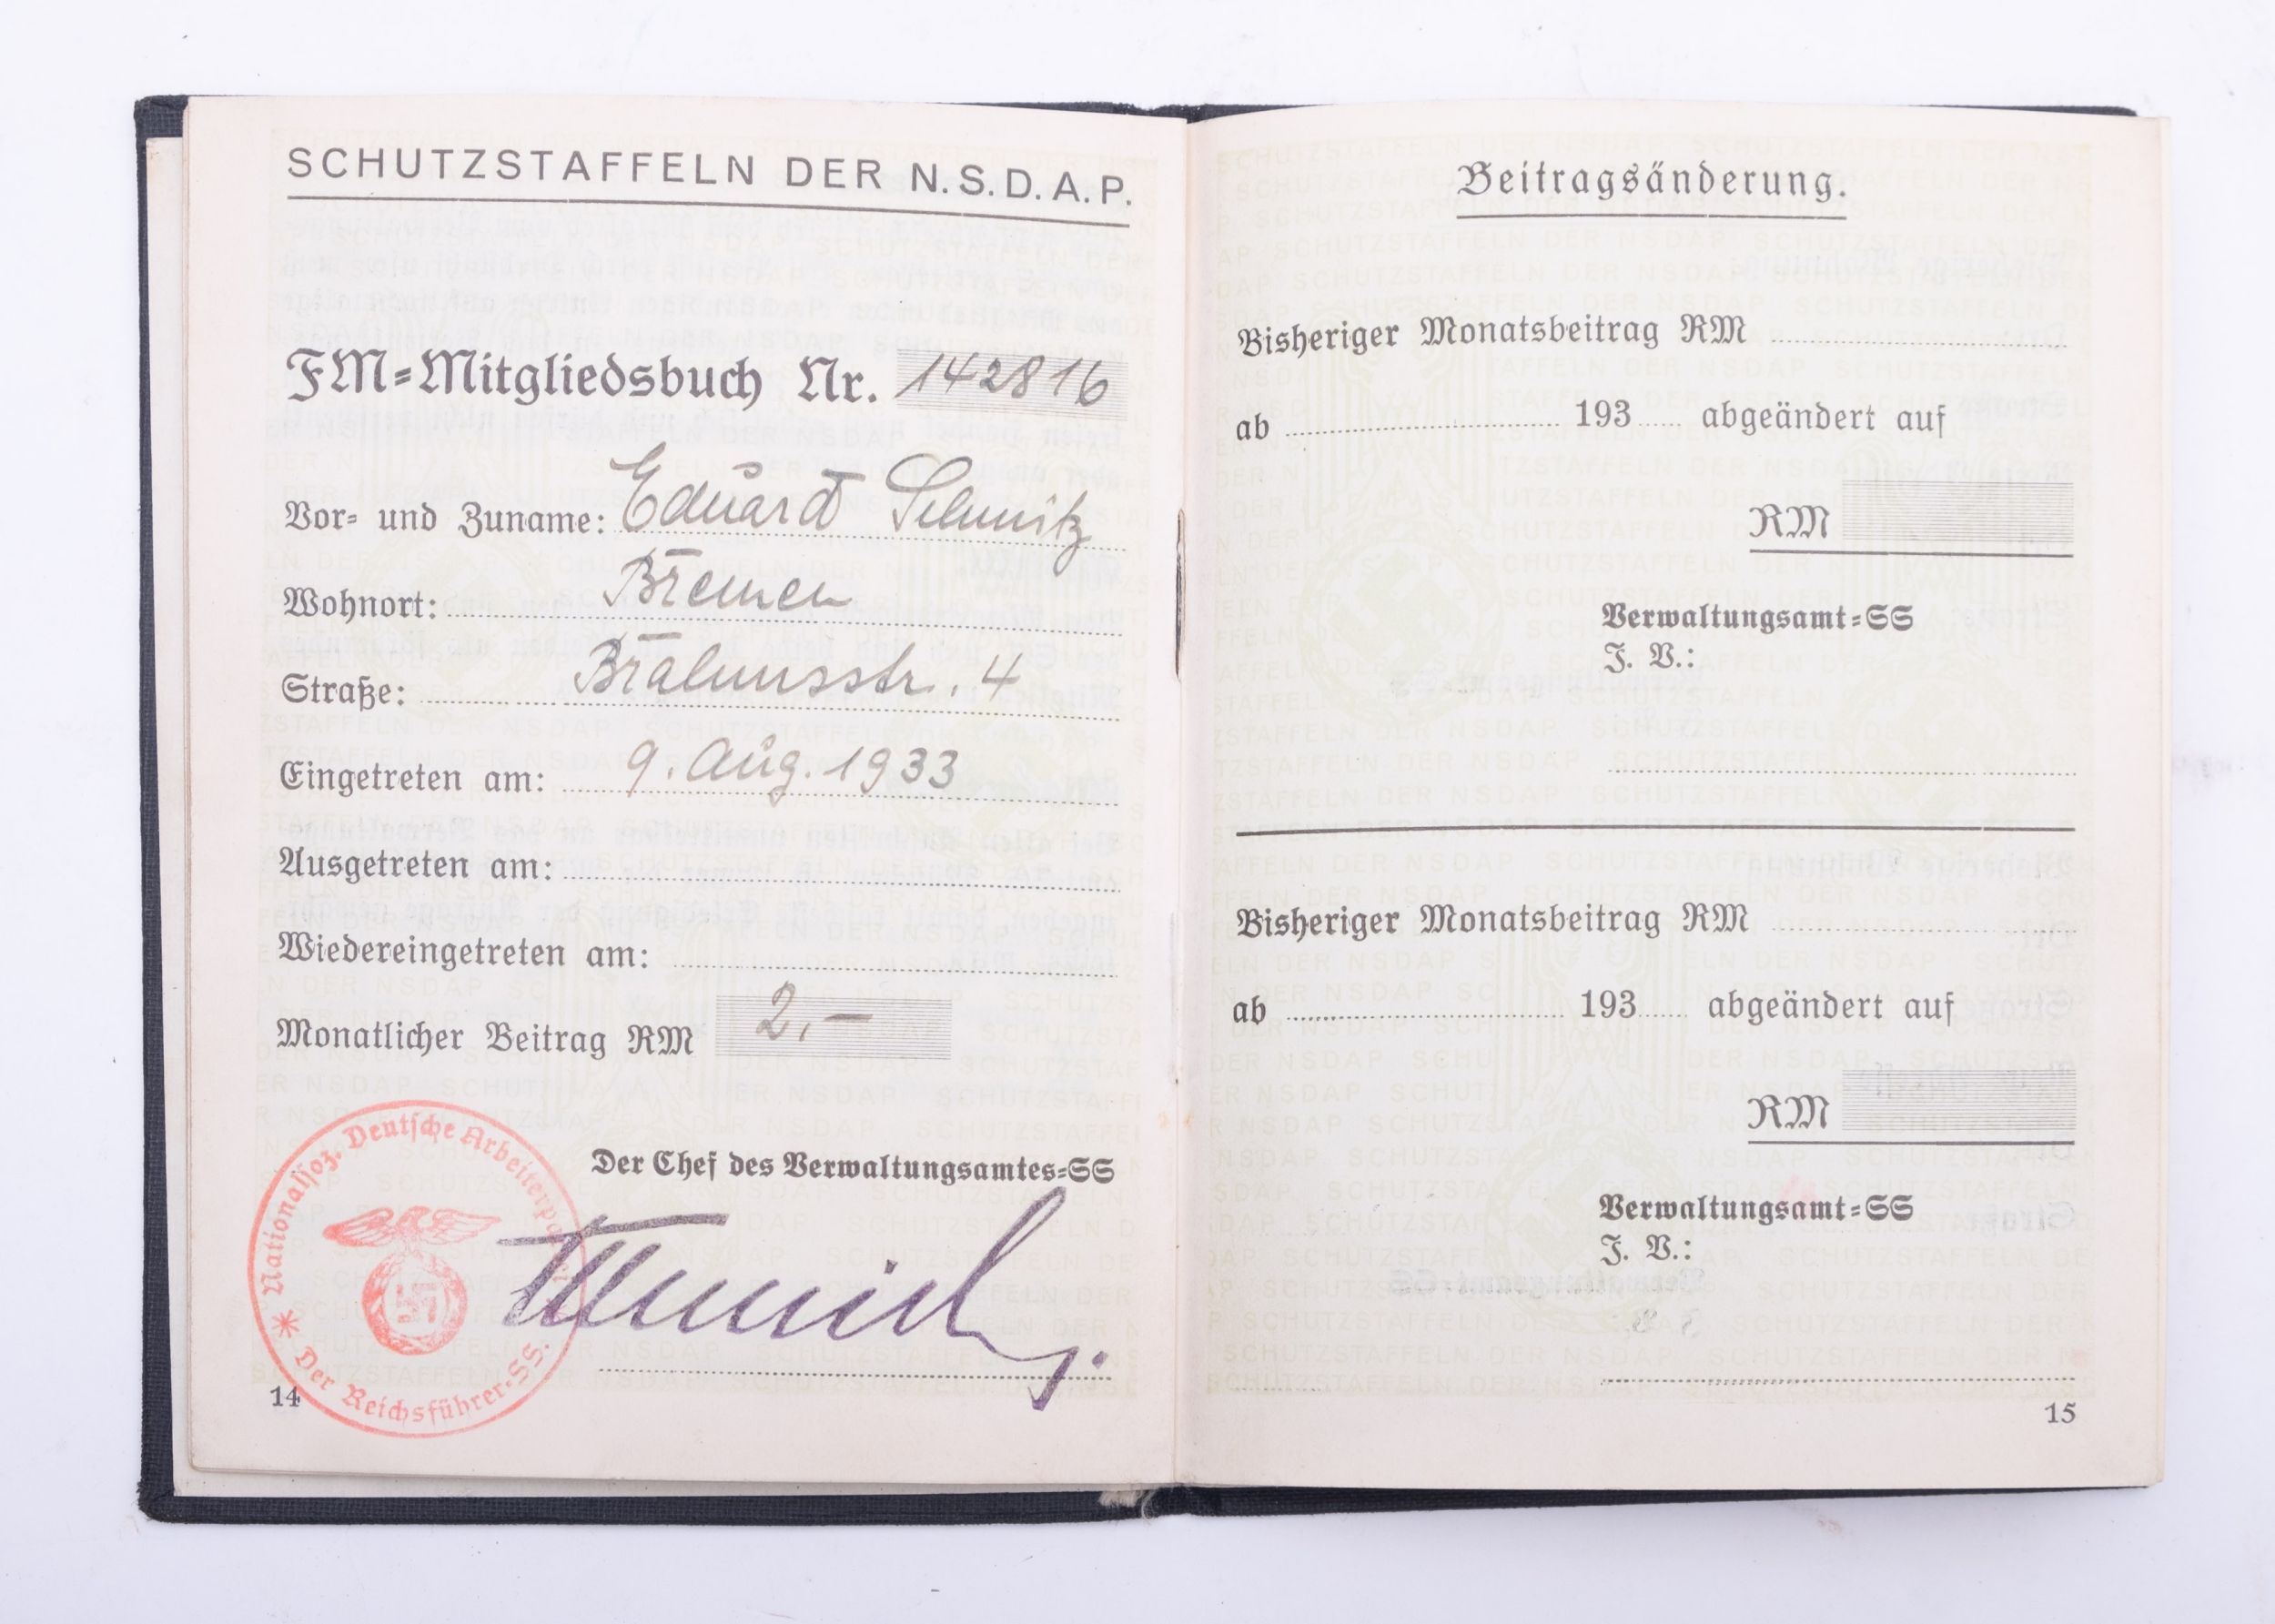 SCHUTZSTAFFELN DER N.S.D.A.P.
FM-Mitgliedsbuch Nr. 142816
Vor- und Zuname: Eduard Schmitz
Wohnort: Bremen
Straße: Brahmsstr. 4
Eingetreten am: 9. Aug. 1933
Ausgetreten am:
Wiedereingetreten am:
Monatlicher Beitrag RM 2,–
Der Chef des Verwaltungsamtes-SS
Nationalsoz. Deutsche Arbeiterpartei
* Der Reichsführer-SS.
14
Beitragsänderung.
Bisheriger Monatsbeitrag RM
ab 193 abgeändert auf
RM
Verwaltungsamt-SS
J. V.:
Bisheriger Monatsbeitrag RM
ab 193 abgeändert auf
RM
Verwaltungsamt-SS
J. V.:
15